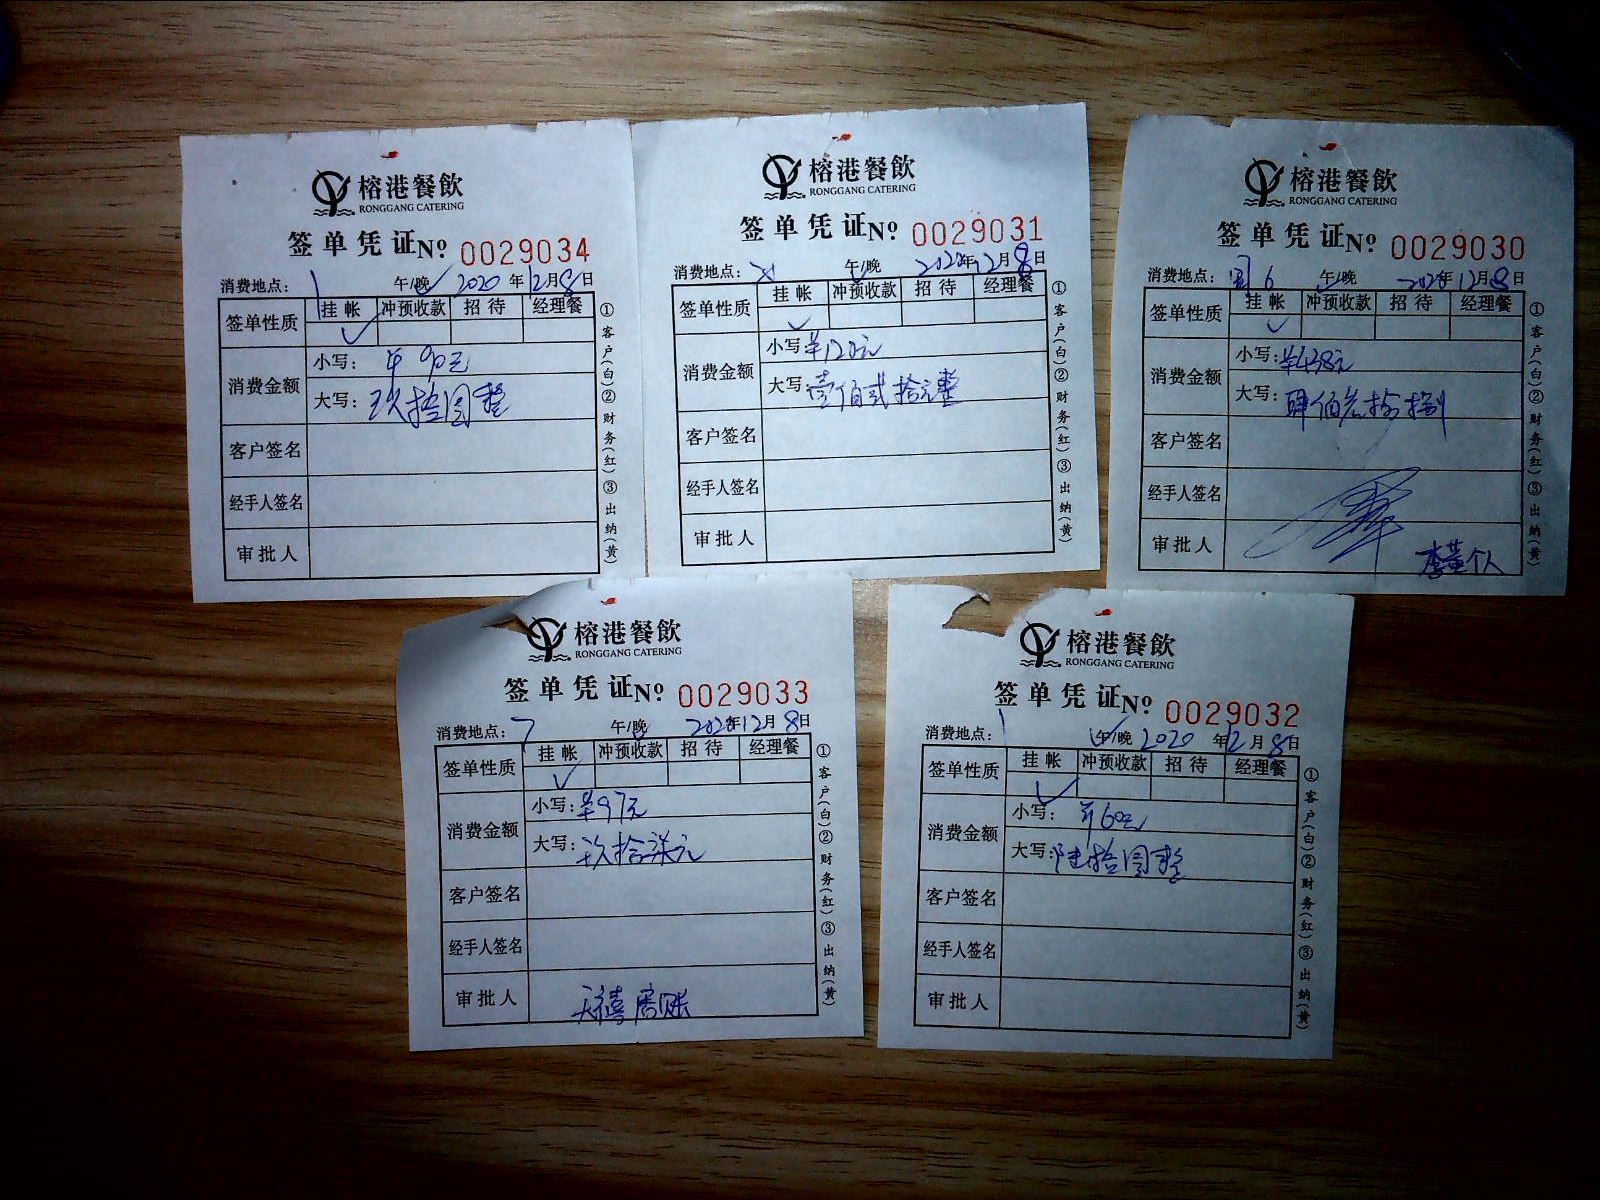 榕港餐飲
RONGGANG CATERING
签单凭证 No 0029034
消费地点: 1 午/晚 2020年12月8日
签单性质 挂帐 冲预收款 招待 经理餐
消费金额
小写: ¥90元
大写: 玖拾圆整
客户签名
经手人签名
审批人
①客户(白)②财务(红)③出纳(黄)
榕港餐飲
RONGGANG CATERING
签单凭证 No 0029031
消费地点: 午/晚 2020年12月8日
签单性质 挂帐 冲预收款 招待 经理餐
消费金额
小写: ¥120元
大写: 壹佰贰拾元整
客户签名
经手人签名
审批人
①客户(白)②财务(红)③出纳(黄)
榕港餐飲
RONGGANG CATERING
签单凭证 No 0029030
消费地点: 6 午/晚 2020年12月8日
签单性质 挂帐 冲预收款 招待 经理餐
消费金额
小写: ¥438元
大写: 肆佰叁拾捌
客户签名
经手人签名
审批人
李董个人
①客户(白)②财务(红)③出纳(黄)
榕港餐飲
RONGGANG CATERING
签单凭证 No 0029033
消费地点: 7 午/晚 2020年12月8日
签单性质 挂帐 冲预收款 招待 经理餐
消费金额
小写: ¥97元
大写: 玖拾柒元
客户签名
经手人签名
审批人 天禧房账
①客户(白)②财务(红)③出纳(黄)
榕港餐飲
RONGGANG CATERING
签单凭证 No 0029032
消费地点: 1 午/晚 2020年12月8日
签单性质 挂帐 冲预收款 招待 经理餐
消费金额
小写: ¥60元
大写: 陆拾圆整
客户签名
经手人签名
审批人
①客户(白)②财务(红)③出纳(黄)